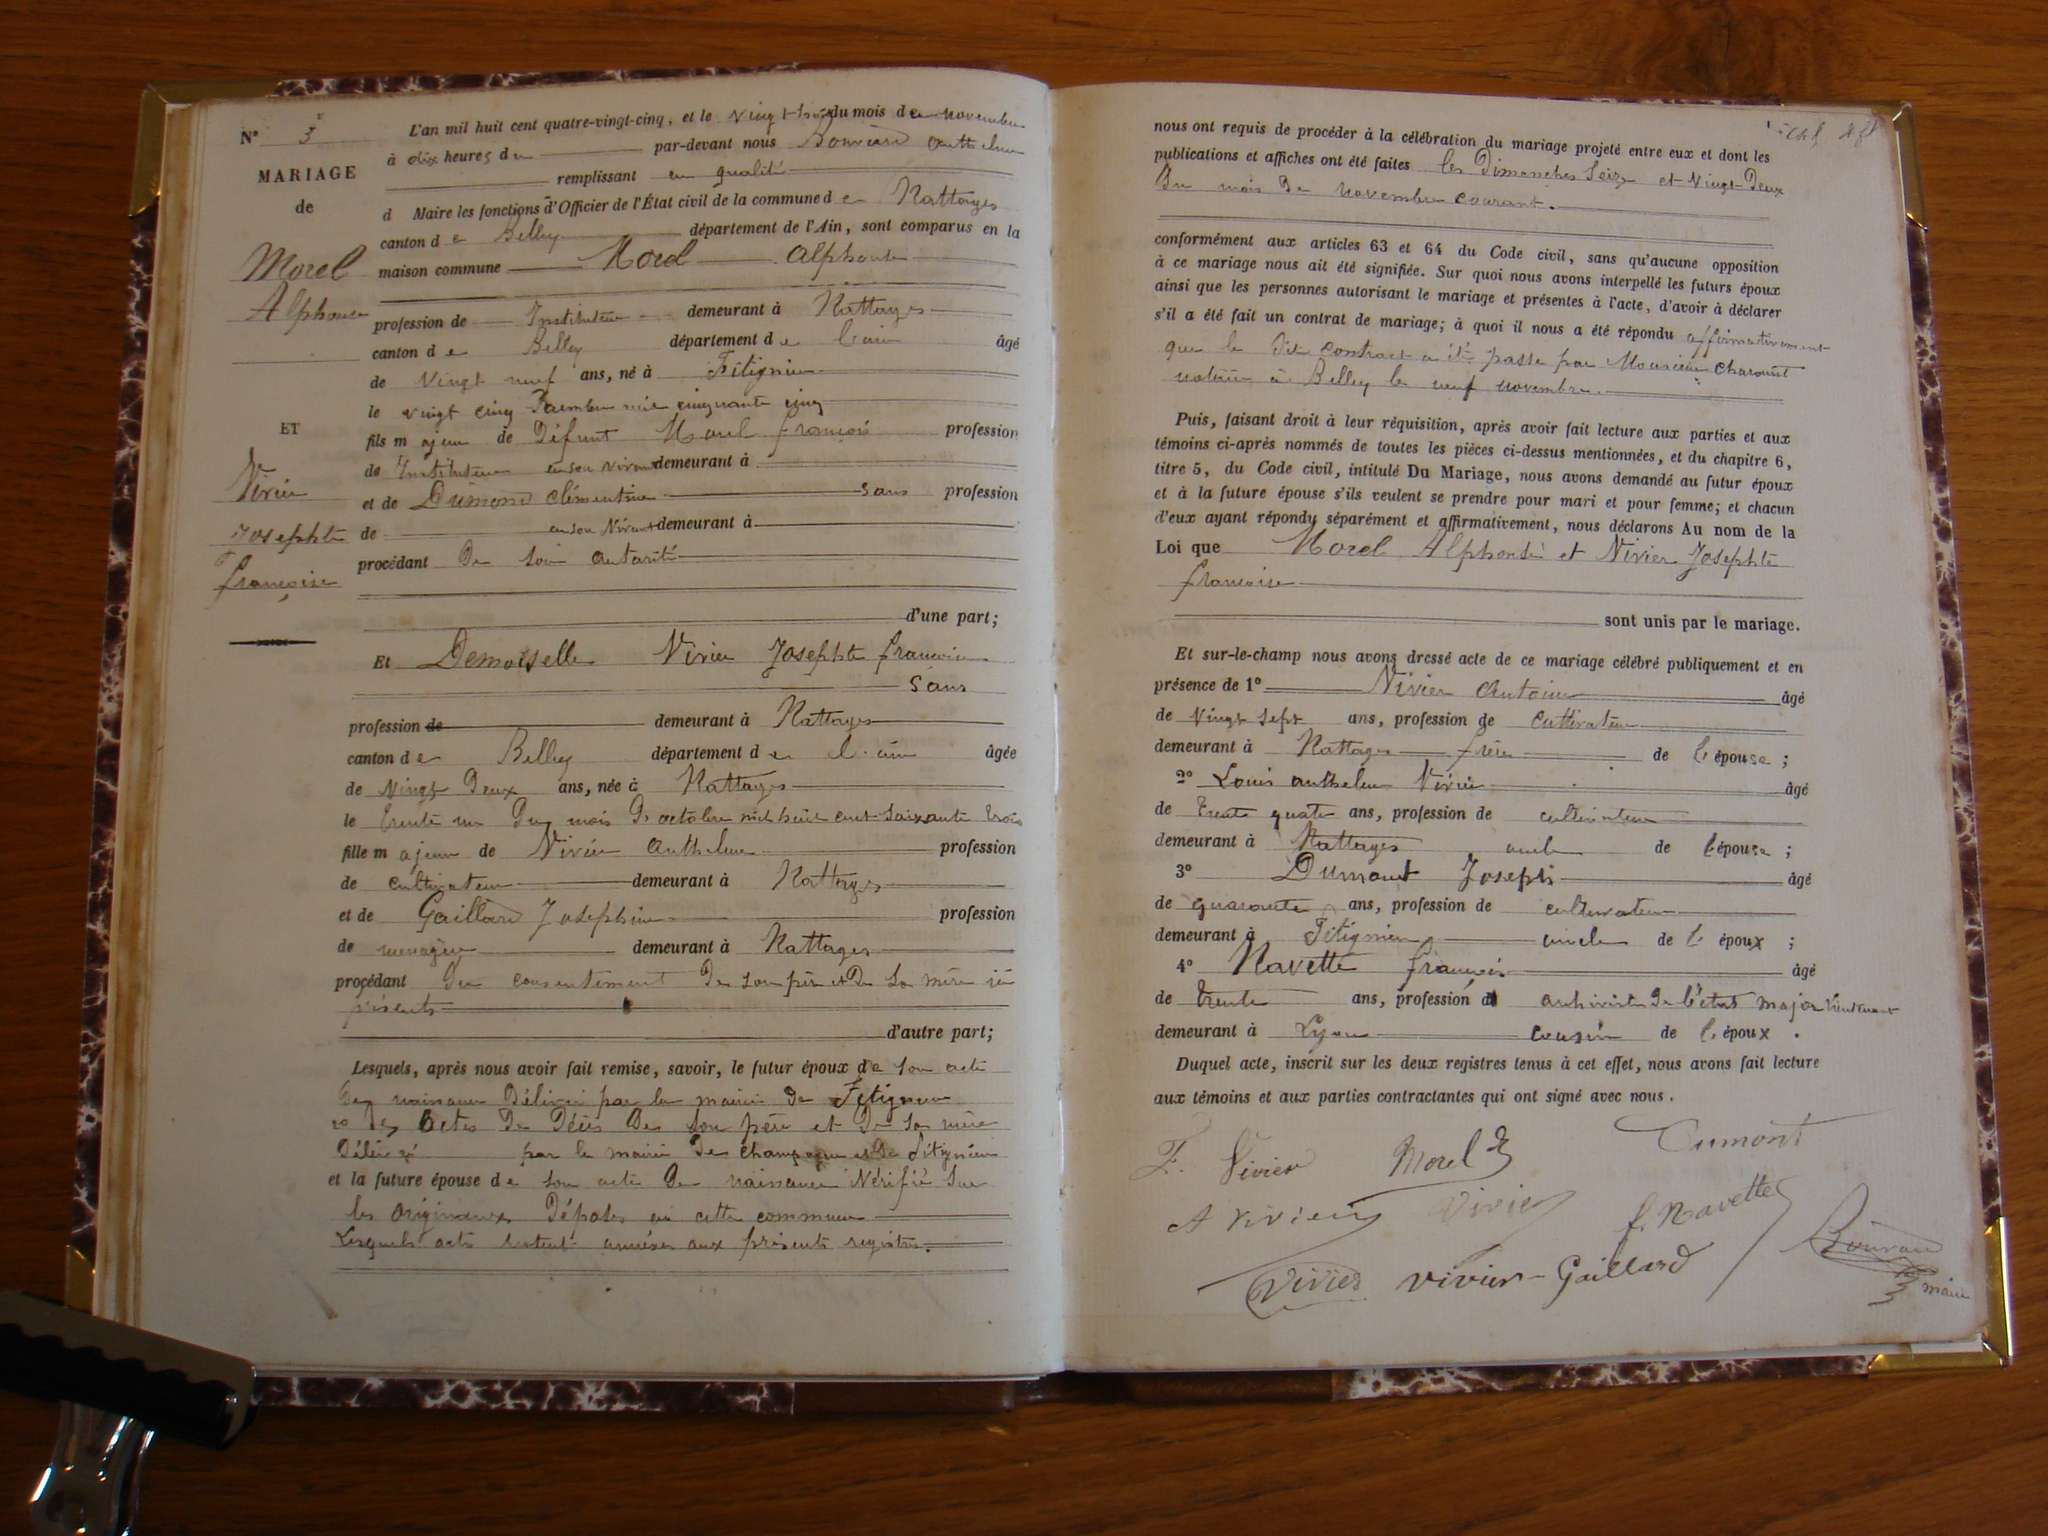 N° 3
MARIAGE
de
Morel
Alphonse
ET
Vivier
Josephte
françoise
L'an mil huit cent quatre-vingt-cinq, et le vingt-trois du mois de novembre
à dix heures du par-devant nous Bouvard anthelme
remplissant en qualité
d Maire les fonctions d'Officier de l'État civil de la commune de Nattages
canton de Belley département de l'Ain, sont comparus en la
maison commune Morel Alphonse
profession de Instituteur demeurant à Nattages
canton de Belley département de l'ain âgé
de vingt neuf ans, né à Fitignieu
le vingt cinq Décembre mil cinquante cinq
fils majeur de Défunt Morel françois profession
de Instituteur en son vivant demeurant à
et de Dumond clémentine sans profession
de en son vivant demeurant à
procédant De son autorité
d'une part;
Et Demoiselle Vivier Josephte françoise
sans
profession de demeurant à Nattages
canton de Belley département de l'ain âgée
de vingt Deux ans, née à Nattages
le trente un Du mois D'octobre mil huit cent soixante trois
fille majeure de Vivier Anthelme profession
de cultivateur demeurant à Nattages
et de Gaillard Josephine profession
de menagère demeurant à Nattages
procédant Du consentement De son père et De sa mère ici
présents
d'autre part;
Lesquels, après nous avoir fait remise, savoir, le futur époux de son acte
De naissance Délivré par la mairie de Fitignieu
2° Des Actes De Décès De son père et De sa mère
Délivré par la mairie De champagne et De Fitignieu
et la future épouse de son acte De naissance Vérifié sur
les originaux Déposés en cette commune
Lesquels acts restent annéxés aux présents registres.
nous ont requis de procéder à la célébration du mariage projeté entre eux et dont les
publications et affiches ont été faites les Dimanches Seize et Vingt-Deux
Du mois De novembre courant.
conformément aux articles 63 et 64 du Code civil, sans qu'aucune opposition
à ce mariage nous ait été signifiée. Sur quoi nous avons interpellé les futurs époux
ainsi que les personnes autorisant le mariage et présentes à l'acte, d'avoir à déclarer
s'il a été fait un contrat de mariage; à quoi il nous a été répondu affirmativement
que le Dit contract a été passé par Monsieur
notaire à Belley le neuf novembre.
Puis, faisant droit à leur réquisition, après avoir fait lecture aux parties et aux
témoins ci-après nommés de toutes les pièces ci-dessus mentionnées, et du chapitre 6,
titre 5, du Code civil, intitulé Du Mariage, nous avons demandé au futur époux
et à la future épouse s'ils veulent se prendre pour mari et pour femme; et chacun
d'eux ayant répondu séparément et affirmativement, nous déclarons Au nom de la
Loi que Morel Alphonse et Vivier Josephte
françoise
sont unis par le mariage.
Et sur-le-champ nous avons dressé acte de ce mariage célébré publiquement et en
présence de 1° Vivier Antoine âgé
de vingt sept ans, profession de cultivateur
demeurant à Nattages frère de l'épouse;
2° Louis anthelme Vivier âgé
de trente quatre ans, profession de cultivateur
demeurant à Nattages oncle de l'épouse;
3° Dumont Joseph âgé
de quarante ans, profession de cultivateur
demeurant à Fitignieu oncle de l'époux;
4° Navette françois âgé
de trente ans, profession d archiviste De l'état major
demeurant à Lyon cousin de l'époux.
Duquel acte, inscrit sur les deux registres tenus à cet effet, nous avons fait lecture
aux témoins et aux parties contractantes qui ont signé avec nous.
F. Vivier Morel Dumont
A Vivier Vivier f. Navette
Vivier Vivier-Gaillard Bouvard
maire